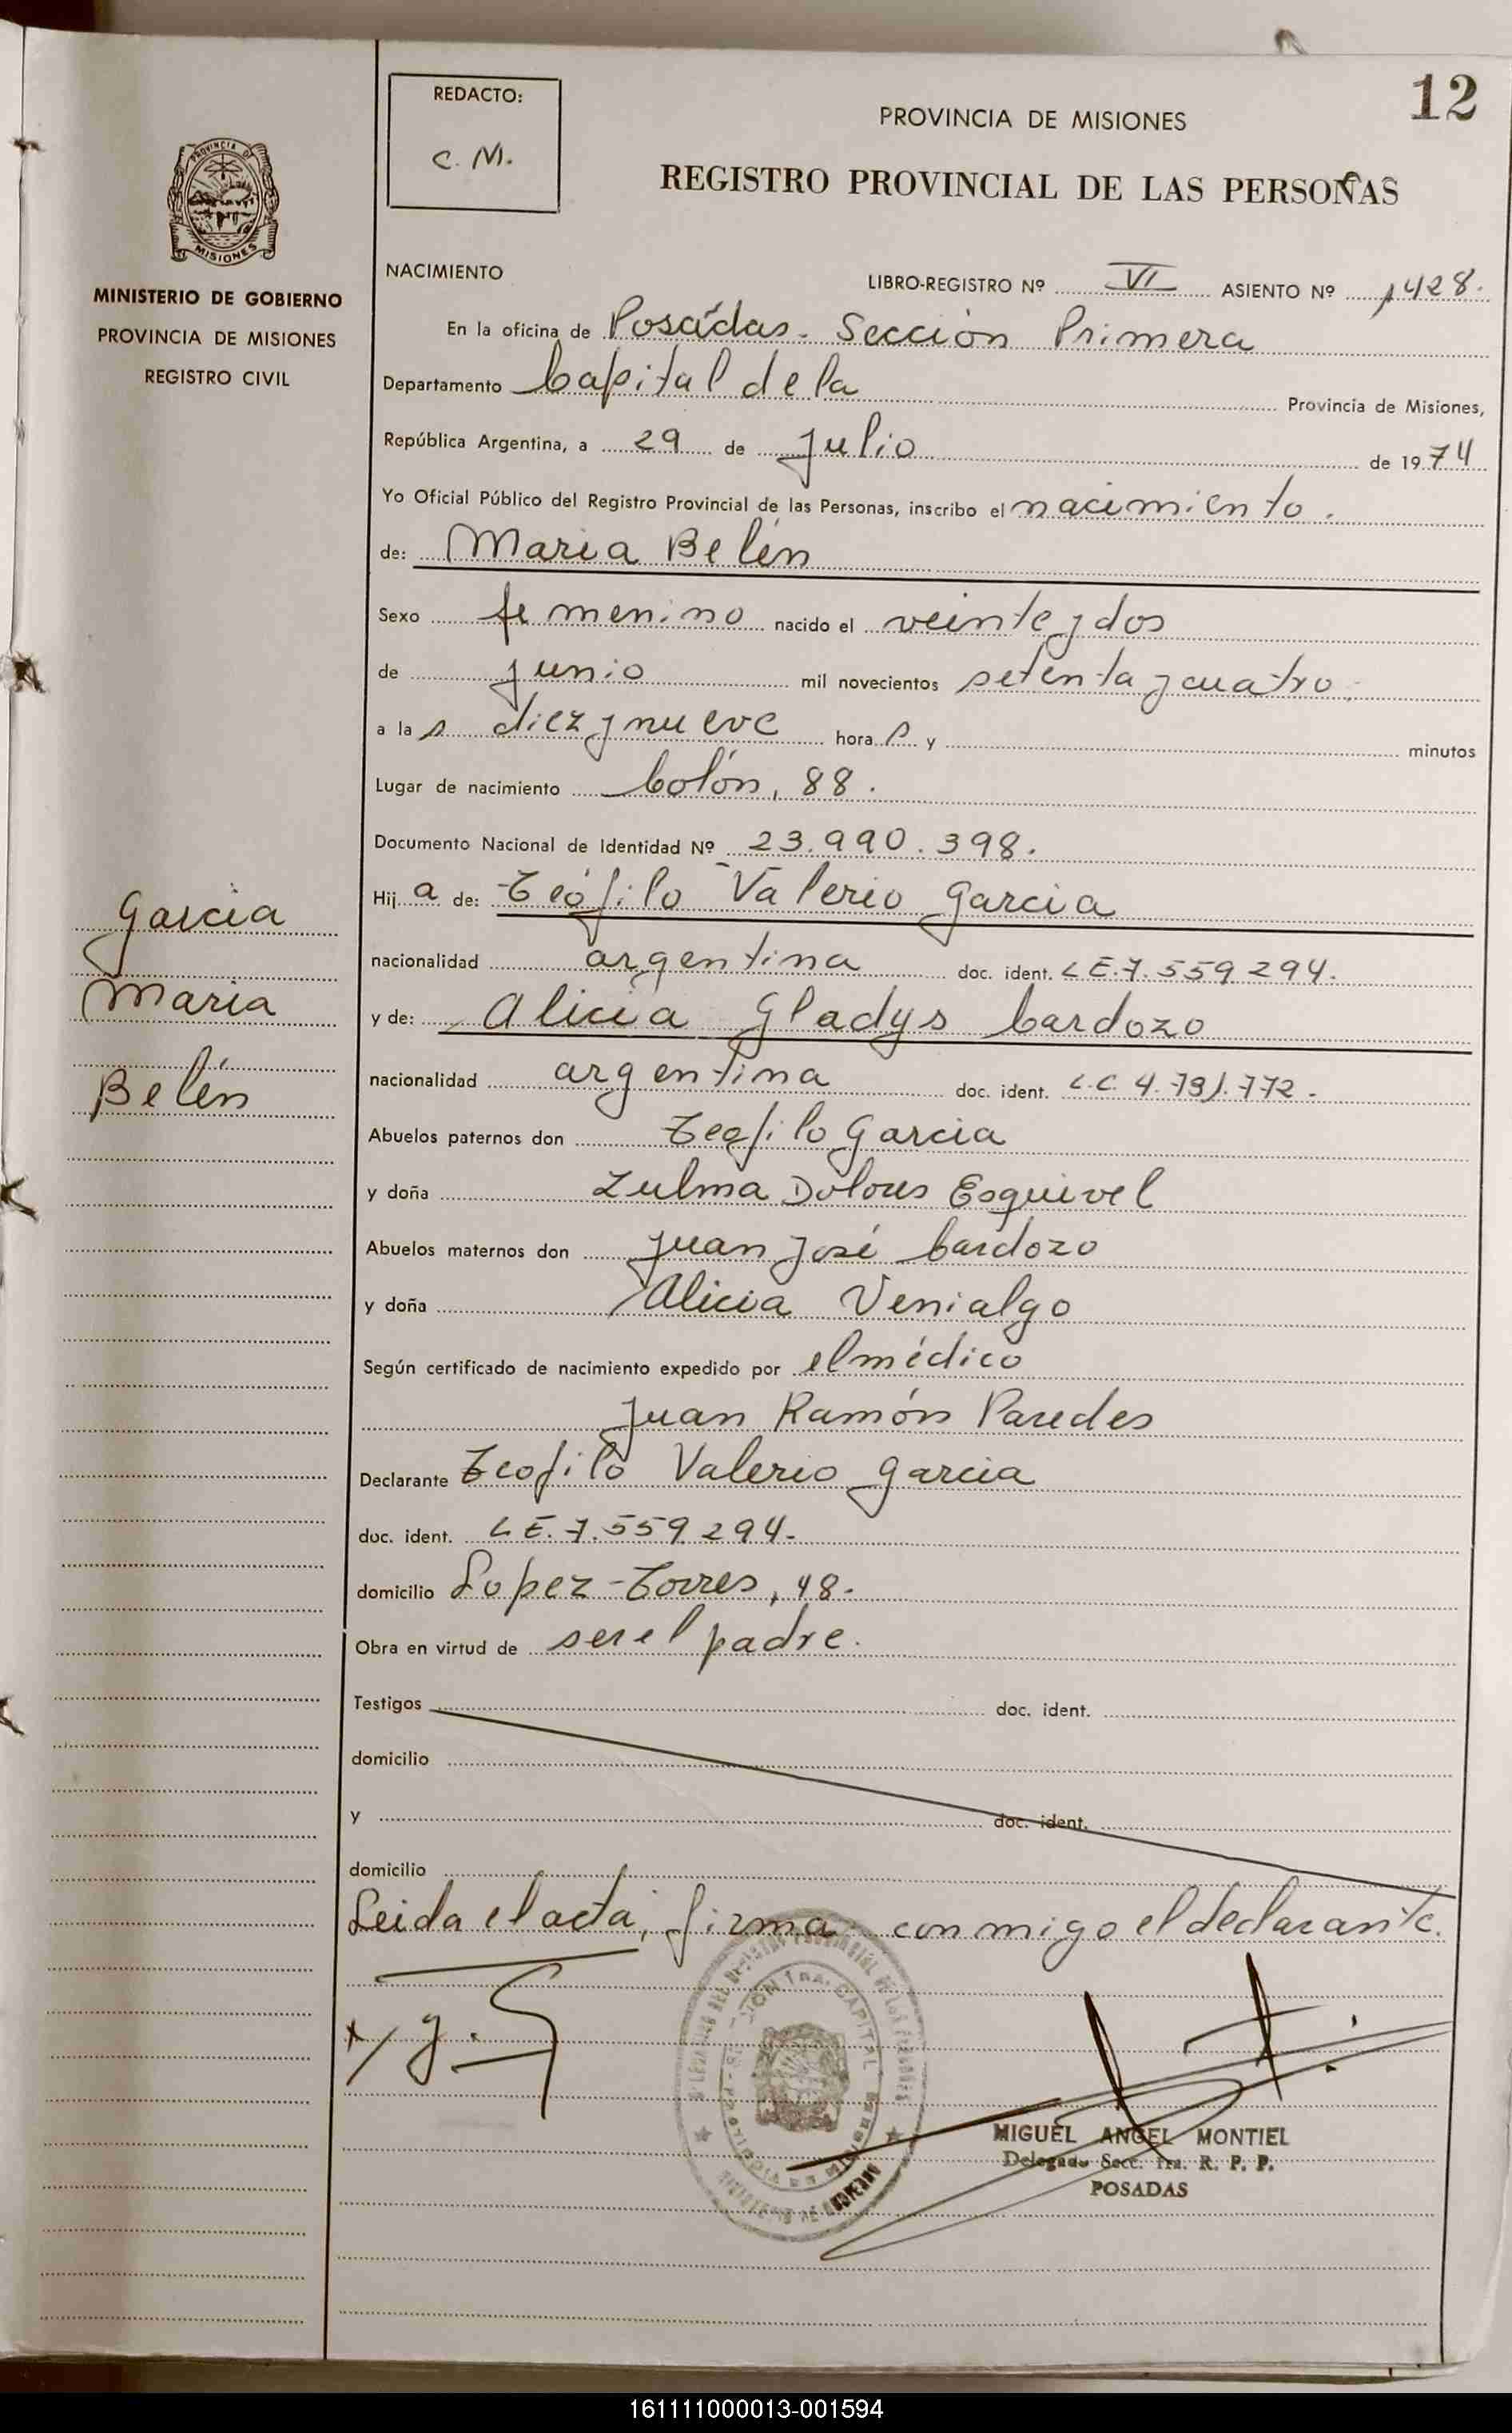 12
REDACTO:
C. M.
PROVINCIA DE MISIONES
REGISTRO PROVINCIAL DE LAS PERSONAS
PROVINCIA DE
MISIONES
MINISTERIO DE GOBIERNO
PROVINCIA DE MISIONES
REGISTRO CIVIL
NACIMIENTO
LIBRO-REGISTRO Nº VI ASIENTO Nº 1428.
En la oficina de Posadas. Sección Primera
Departamento Capital de la Provincia de Misiones,
República Argentina, a 29 de Julio de 1974
Yo Oficial Público del Registro Provincial de las Personas, inscribo el nacimiento.
de: Maria Belén
Sexo femenino nacido el veinte y dos
de junio mil novecientos setenta y cuatro.
a las diez y nueve horas y minutos
Lugar de nacimiento Colón, 88.
Documento Nacional de Identidad Nº 23.990.398.
Hija de: Teófilo Valerio Garcia
nacionalidad argentina doc. ident. L E. 7. 559 294.
y de: Alicia Gladys Cardozo
nacionalidad argentina doc. ident. L.C. 4. 791. 772.
Abuelos paternos don Teofilo Garcia
y doña Zulma Dolores Esquivel
Abuelos maternos don Juan José Cardozo
y doña Alicia Venialgo
Según certificado de nacimiento expedido por el médico
Juan Ramón Paredes
Declarante Teofilo Valerio Garcia
doc. ident. L E. 7. 559. 294-
domicilio Lopez-Torres, 48.
Obra en virtud de ser el padre.
Testigos doc. ident.
domicilio
y doc. ident.
domicilio
Leida el acta, firma conmigo el declarante.
Garcia
Maria
Belén
MIGUEL ANGEL MONTIEL
Delegado Secc. 1ra. R. P. P.
POSADAS
161111000013-001594